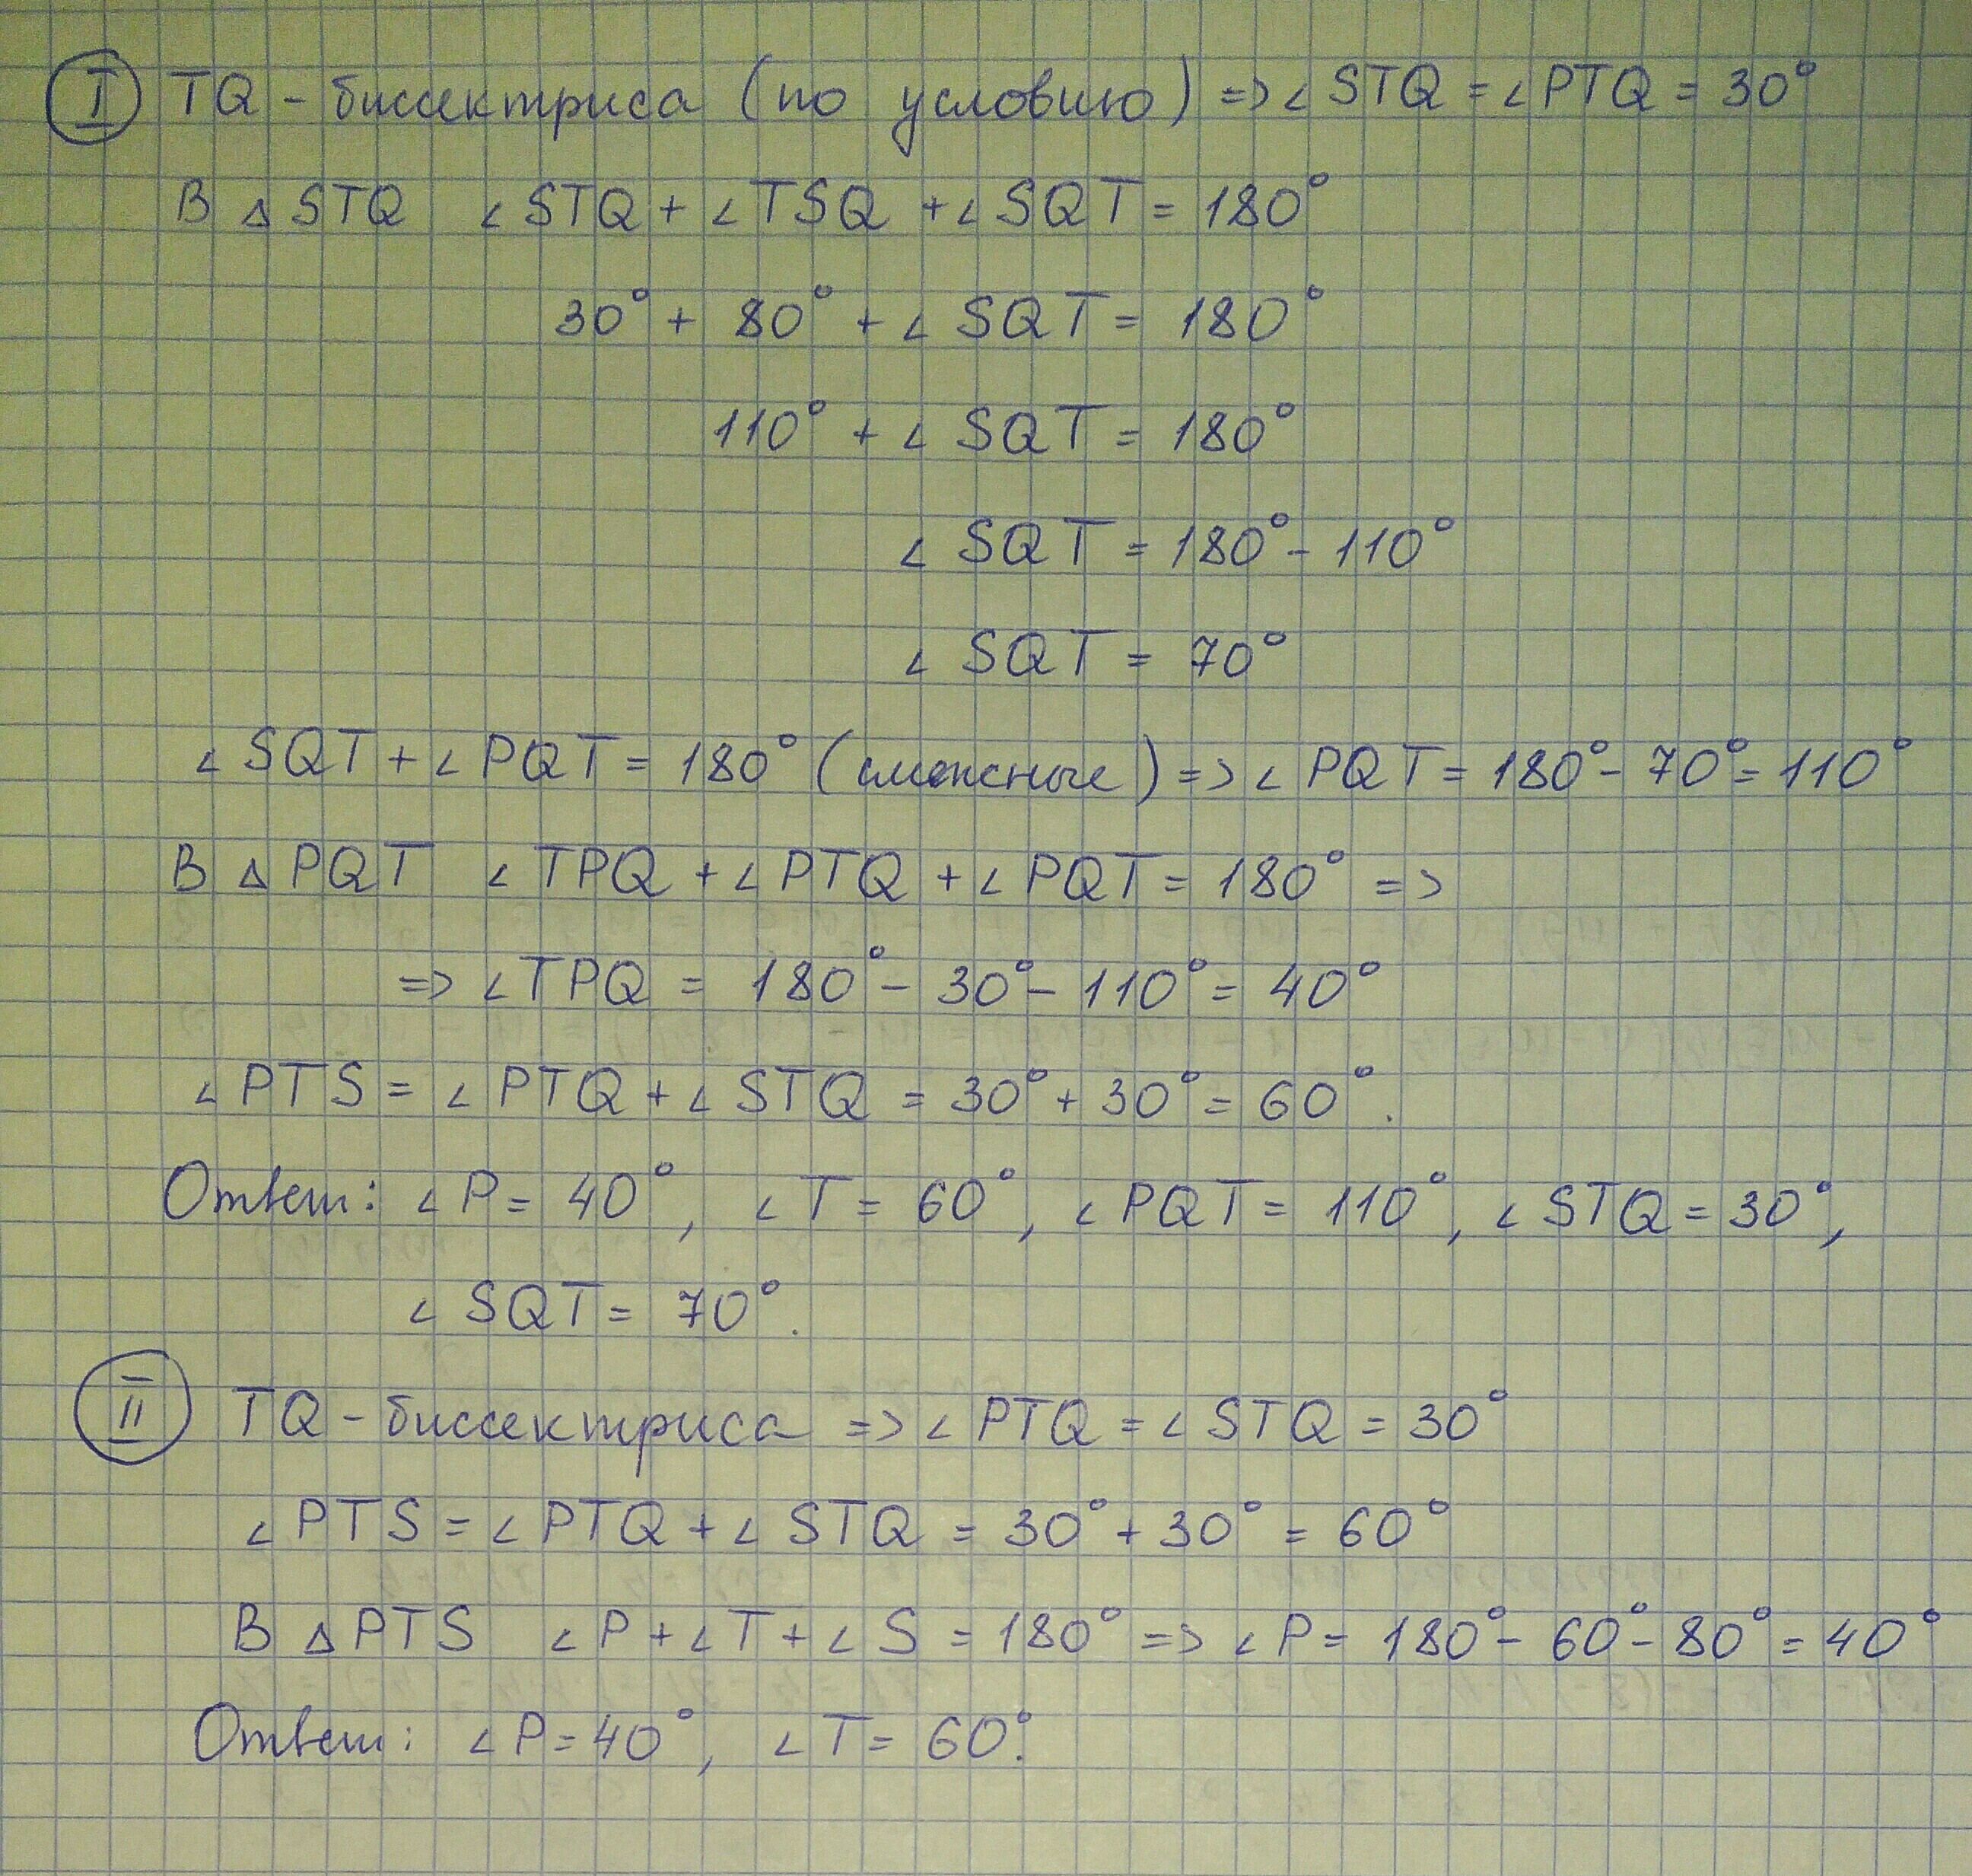 I TQ - биссектриса (по условию) => ∠ STQ = ∠ PTQ = 30°
В △ STQ ∠ STQ + ∠ TSQ + ∠ SQT = 180°
30° + 80° + ∠ SQT = 180°
110° + ∠ SQT = 180°
∠ SQT = 180° - 110°
∠ SQT = 70°
∠ SQT + ∠ PQT = 180° (смежные) => ∠ PQT = 180° - 70° = 110°
В △ PQT ∠ TPQ + ∠ PTQ + ∠ PQT = 180° =>
=> ∠ TPQ = 180° - 30° - 110° = 40°
∠ PTS = ∠ PTQ + ∠ STQ = 30° + 30° = 60°.
Ответ: ∠ P = 40°, ∠ T = 60°, ∠ PQT = 110°, ∠ STQ = 30°,
∠ SQT = 70°.
II TQ - биссектриса => ∠ PTQ = ∠ STQ = 30°
∠ PTS = ∠ PTQ + ∠ STQ = 30° + 30° = 60°
В △ PTS ∠ P + ∠ T + ∠ S = 180° => ∠ P = 180° - 60° - 80° = 40°
Ответ: ∠ P = 40°, ∠ T = 60°.